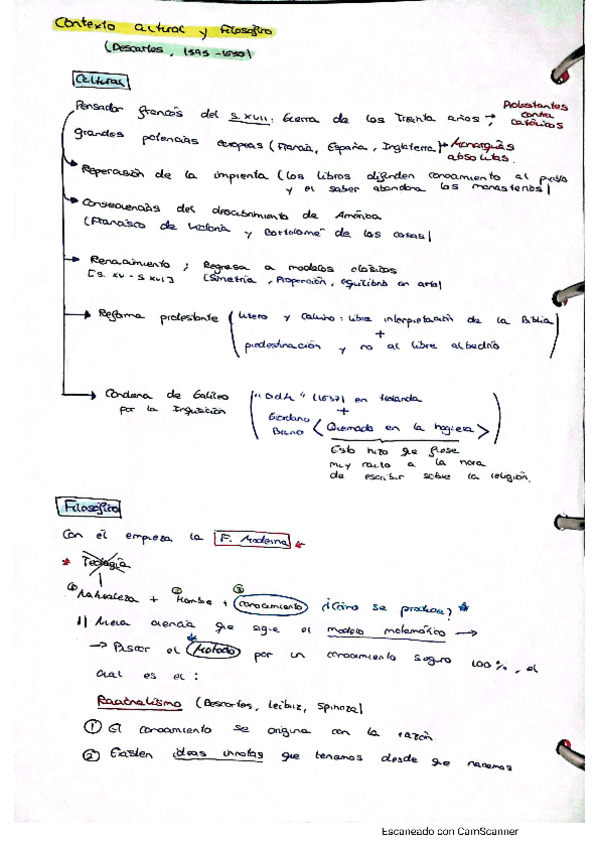 Contexto cultural y Filosófico
(Descartes, 1595-1650)
Cultural
Pensador francés del s. XVII. Guerra de los Treinta años → Protestantes contra católicos
grandes potencias europeas (Francia, España, Inglaterra) → Monarquías absolutas.
Reperación de la imprenta (los libros difunden conocimiento al pueblo
y el saber abandona los monasterios)
Consecuencias del descubrimiento de América
(Francisco de Vitoria y Bartolomé de las casas)
Renacimiento ; Regresa a modelos clásicos
[s. XV - s XVI] [Simetría, Proporción, equilibrio en arte]
→ Reforma protestante (Lutero y Calvino: libre interpretación de la Biblia
+
predestinación y no al libre albedrío)
→ Condena de Galileo ("DdM" (1637) en Holanda
por la Inquisición +
Giordano Bruno < Quemado en la hoguera >)
Esto hizo que fuese
muy cauto a la hora
de escribir sobre la religión.
Filosófico
Con él empieza la F. Moderna
* Teología
① Naturaleza + ② Hombre + ③ conocimiento ¿(Cómo se produce?) *
1) Nueva ciencia que sigue el modelo matemático →
→ Pasar el Método por un conocimiento seguro 100%, el
cual es el:
Racionalismo (Descartes, Leibiz, Spinoza)
① El conocimiento se origina con la razón.
② Existen ideas innatas que tenamos desde que nacemos
Escaneado con CamScanner